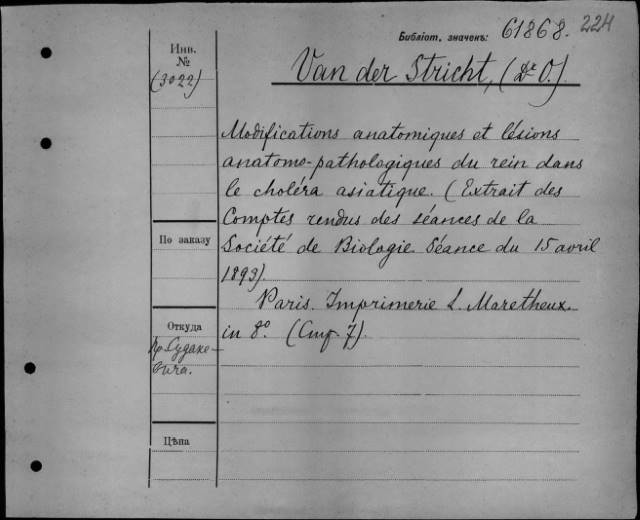 Библіот. значенъ: 61868. 224
Инв.
№
(3022)
Van der Stricht, (Dr O.)
Modifications anatomiques et lésions
anatomo-pathologiques du rein dans
le choléra asiatique. (Extrait des
Comptes rendus des séances de la
Société de Biologie Séance du 15 avril
1893).
Paris. Imprimerie L. Maretheux.
in 8o. (Стр. 7).
По заказу
Откуда
Пр. Судаке-
вича.
Цѣна